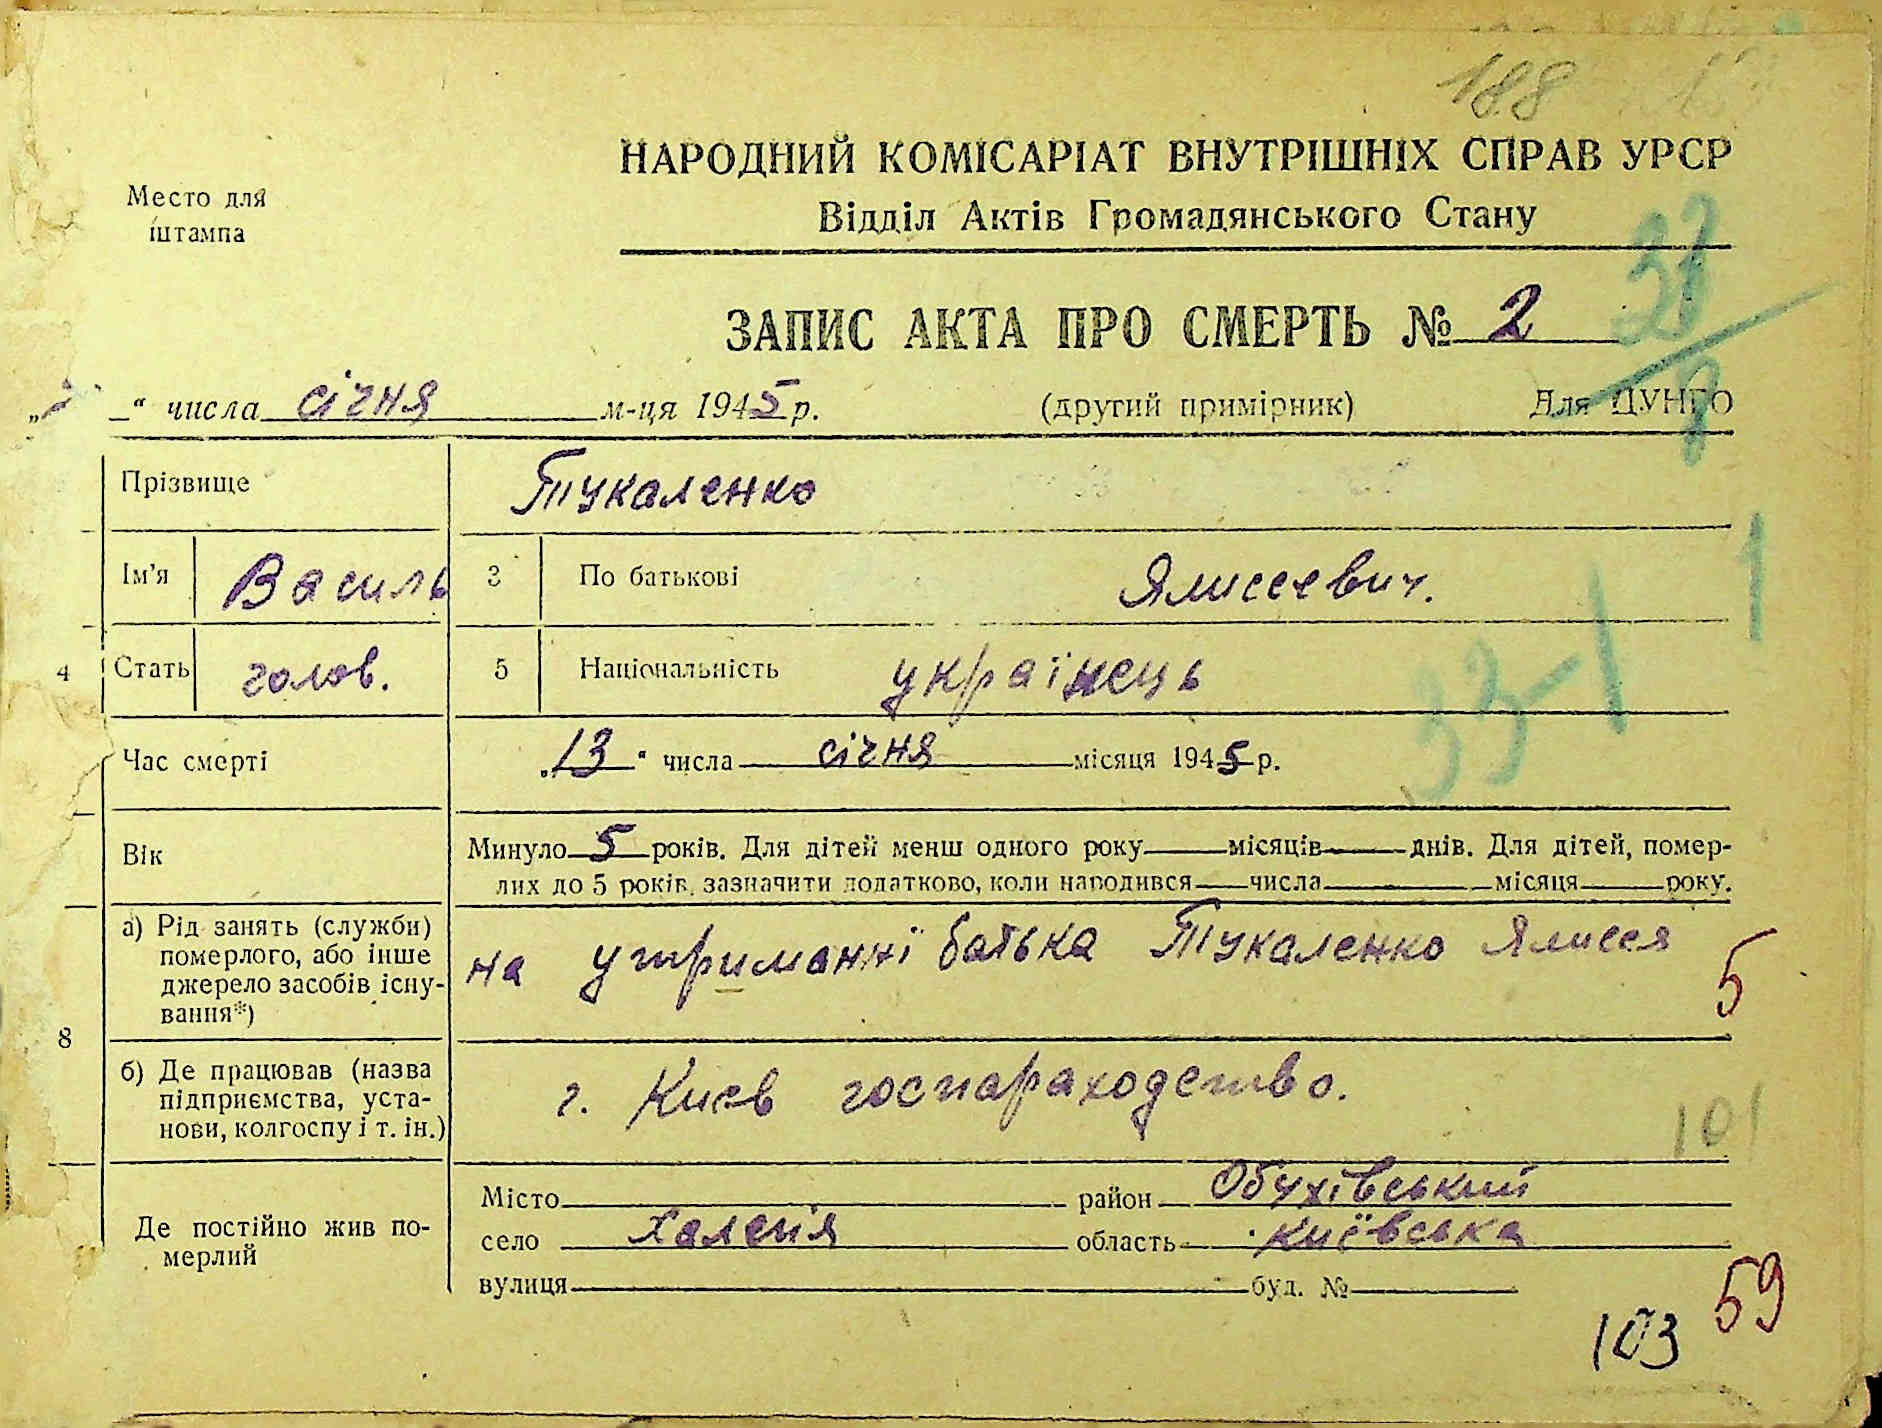 188
НАРОДНИЙ КОМІСАРІАТ ВНУТРІШНІХ СПРАВ УРСР
Место для
штампа
Відділ Актів Громадянського Стану
ЗАПИС АКТА ПРО СМЕРТЬ № 2
„ “ числа січня м-ця 1945 р. (другий примірник) Для ЦУНГО
Прізвище Тукаленко
Ім'я Василь 3 По батькові Ялисеевич.
1
4 Стать голов. 5 Національність українець
33-1
Час смерті „13“ числа січня місяця 1945 р.
Вік Минуло 5 років. Для дітей менш одного року місяців днів. Для дітей, помер-
лих до 5 років, зазначити додатково, коли народився числа місяця року.
8
а) Рід занять (служби)
померлого, або інше
джерело засобів існу-
вання*)
на утриманні батька Тукаленко Ялисея
5
б) Де працював (назва
підприємства, уста-
нови, колгоспу і т. ін.)
г. Киев госпараходство.
101
Де постійно жив по-
мерлий
Місто район Обухівський
село Халепія область Київська
вулиця буд. №
59
103